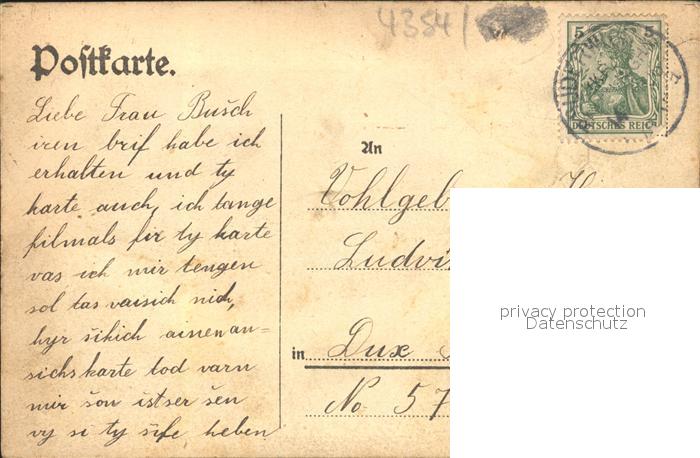 4354/
Postkarte.
5 5
DEUTSCHES REICH
Liebe Frau Busch
iren brif habe ich
erhalten und ty
karte auch, ich tange
filmals fir ty karte
vas ich mir tengen
sol tas vaisich nich,
hyr šikich ainen an=
sichskarte tod varn
mir šon istser šen
vy si ty šife heben
An
Vohlgeb
Ludvi
in Dux
No 57
privacy protection
Datenschutz